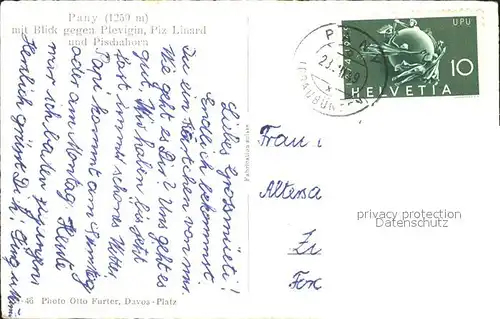 Pany (1250 m)
mit Blick gegen Plevigin, Piz Linard
und Pischahorn
Liebes Grossmüeti!
Endlich bekommst
Du ein Kärtchen von mir.
Wie geht es Dir? Uns geht es
gut. Wir haben bis jetzt
fast immer schönes Wetter.
Papi kommt am Samstag
oder am Montag. Heute
mir sch baden gegangen
Herzlich grüsst Di
46 Photo Otto Furter, Davos-Platz
Fabrikationsfoto
1874 1949
UPU
10
HELVETIA
PANY
Frau
Altersa
privacy protection
Datenschutz